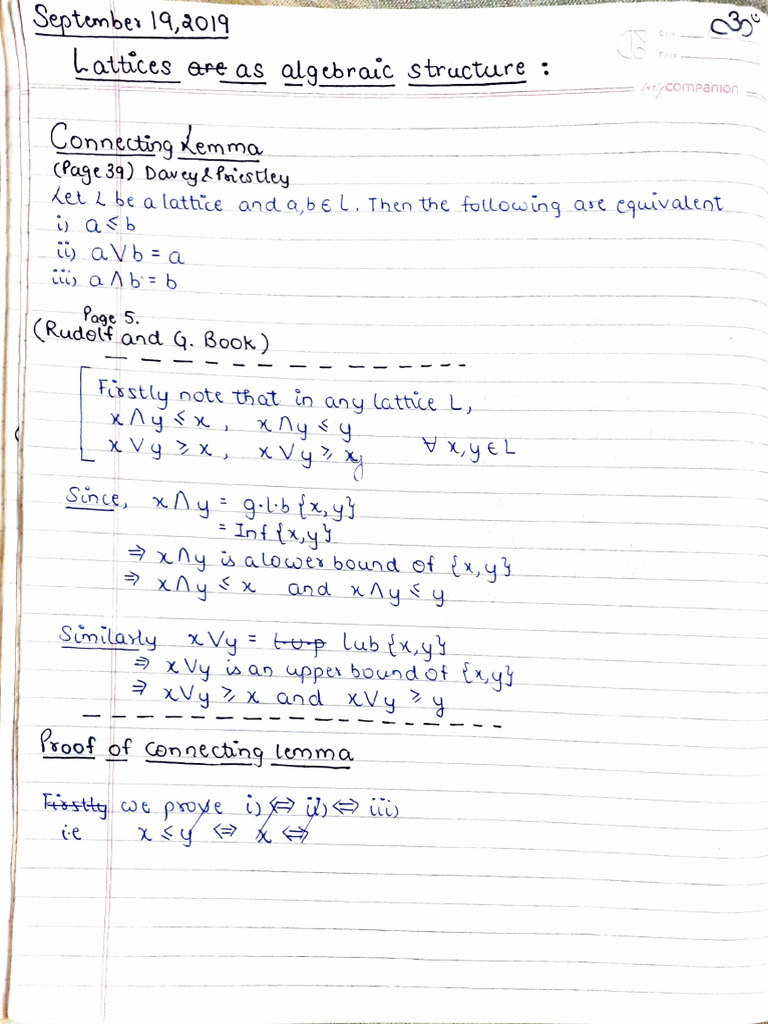 September 19, 2019
Lattices are as algebraic structure :
companion
Connecting Lemma
(Page 39) Davey & Priestley
Let L be a lattice and a,b ∈ L. Then the following are equivalent
i) a ≤ b
ii) a ∨ b = a
iii) a ∧ b = b
Page 5.
(Rudolf and G. Book)
Firstly note that in any lattice L,
x ∧ y ≤ x , x ∧ y ≤ y
x ∨ y ≥ x , x ∨ y ≥ y ∀ x, y ∈ L
Since, x ∧ y = g.l.b {x,y}
= Inf {x,y}
⇒ x ∧ y is a lower bound of {x,y}
⇒ x ∧ y ≤ x and x ∧ y ≤ y
Similarly x ∨ y = lub {x,y}
⇒ x ∨ y is an upper bound of {x,y}
⇒ x ∨ y ≥ x and x ∨ y ≥ y
Proof of connecting lemma
Firstly we prove i) ⇔ ii) ⇔ iii)
i.e x ≤ y ⇔ x ⇔